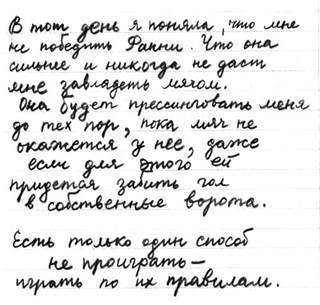 В тот день я поняла, что мне
не победить Фанни. Что она
сильнее и никогда не даст
мне завладеть мячом.
Она будет прессинговать меня
до тех пор, пока мяч не
окажется у нее, даже
если для этого ей
придется забить гол
в собственные ворота.
Есть только один способ
не проиграть —
играть по их правилам.